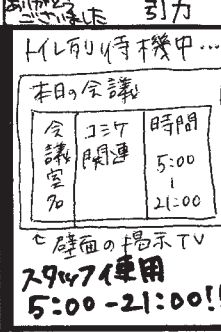 ありがとう
ございました
引力
トイレ列り待機中…
本日の会議
会議室名
コミケ関連
時間
5:00
~
21:00
↑壁面の掲示TV
スタッフ使用
5:00-21:00!!